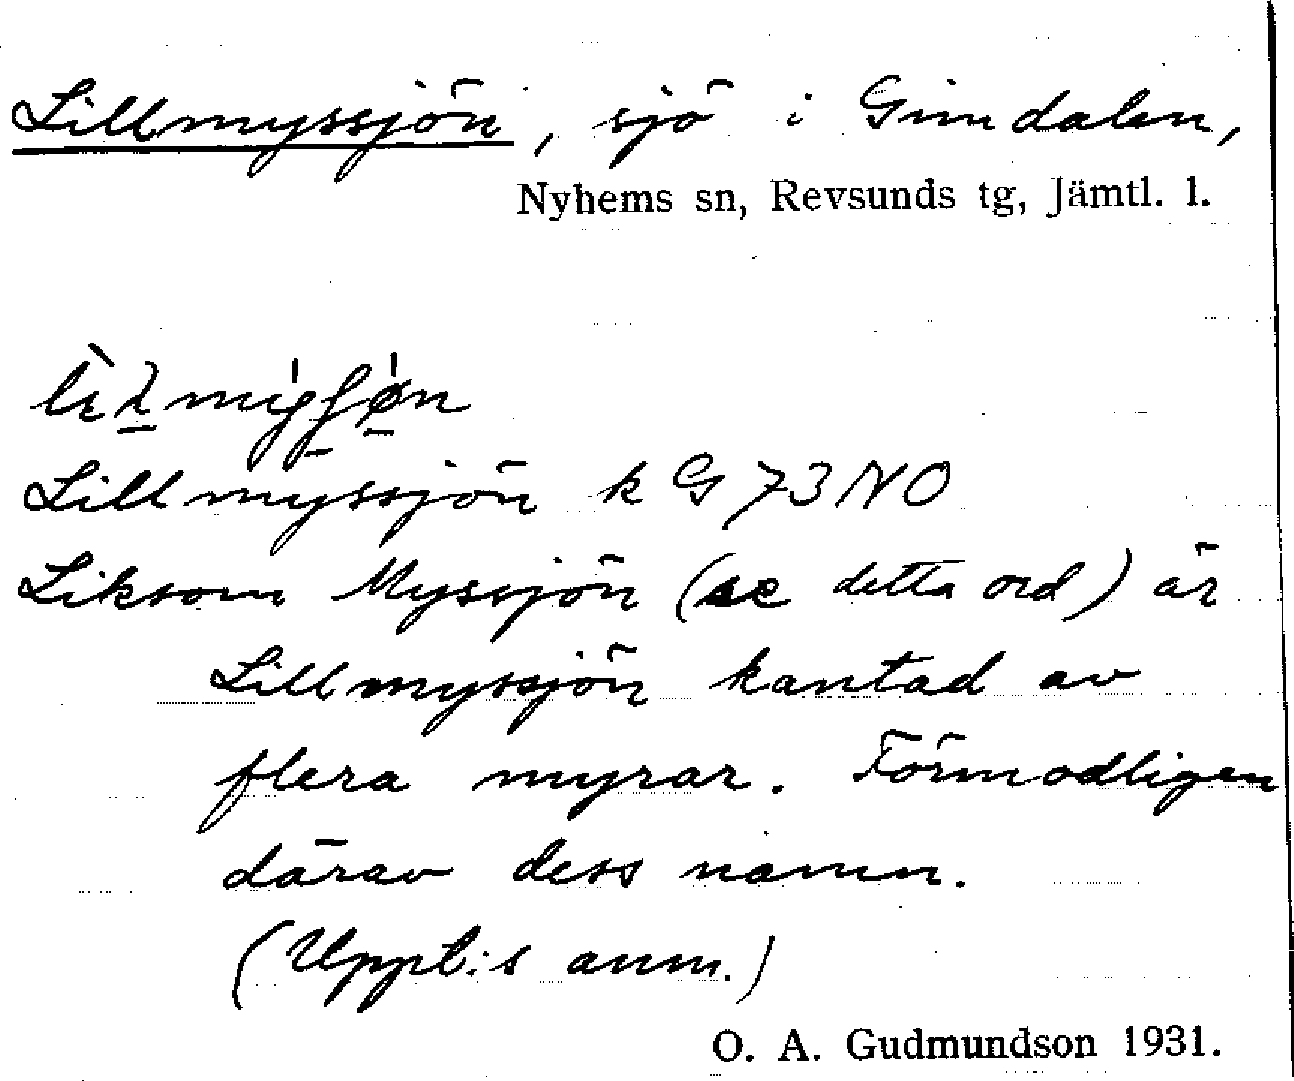 Lillmyssjön, sjö i Gimdalen,
Nyhems sn, Revsunds tg, Jämtl. l.
Lillmyssjön k G 73 NO
Liksom Myssjön (se detta ord) är
Lillmyssjön kantad av
flera myrar. Förmodligen
därav dess namn.
(Uppt:s anm.)
O. A. Gudmundson 1931.